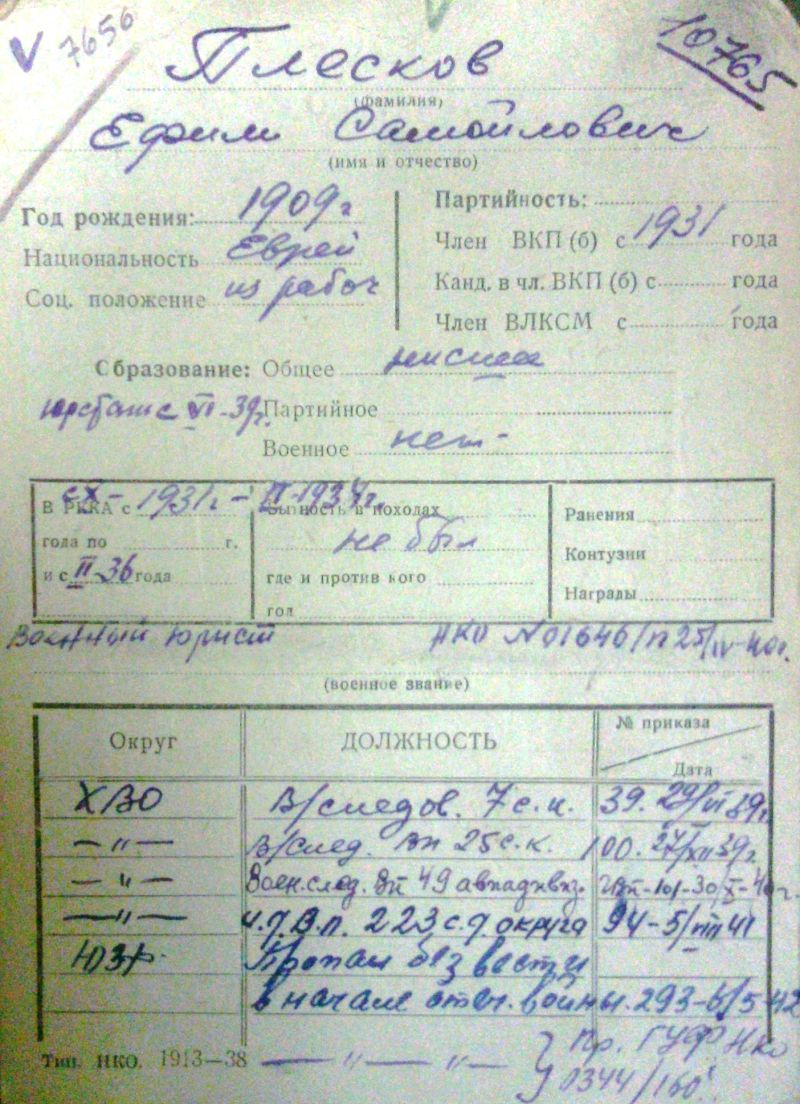 7656
10765
Плесков
(фамилия)
Ефим Самойлович
(имя и отчество)
Год рождения: 1909 г
Национальность Еврей
Соц. положение из рабоч
Партийность:
Член ВКП (б) с 1931 года
Канд. в чл. ВКП (б) с года
Член ВЛКСМ с года
Образование: Общее
VI-39г. Партийное
Военное нет
В РККА с 1931г-
года по г.
и с II-36 года
Бытность в походах
не был
где и против кого
год
Ранения
Контузии
Награды
Военный юрист НКО № 01646/п 25/IV-40г.
(военное звание)
Округ ДОЛЖНОСТЬ № приказа
Дата
ХВО В/следов. 7 с.к. 39. 29/ 39г
—"— В/след. ВП 25 с.к. 100. 39г.
—"— Воен.след. ВП 49
—"— и.д. В.п. 223 с.д округа 94-5/ 41
ЮЗФ. Пропал без вести
в начале отеч. войны. 293- 5-42
Тип. НКО. 1913—38 —"— "— Пр. ГУФ НКО
0344/